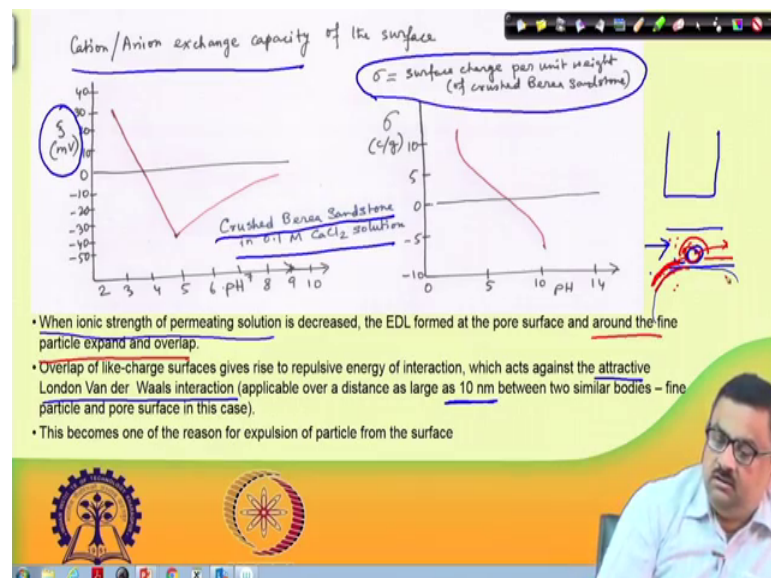 Cation/Anion exchange capacity of the surface
σ = surface charge per unit weight
(of crushed Berea Sandstone)
ζ
(mV)
40
30
20
10
0
-10
-20
-30
-40
-50
2 3 4 5 6 PH 7 8 9 10
Crushed Berea Sandstone
in 0.1 M CaCl2 solution
σ
(c/g)
10
5
0
-5
-10
0 5 10 PH 14
• When ionic strength of permeating solution is decreased, the EDL formed at the pore surface and around the fine
particle expand and overlap.
• Overlap of like-charge surfaces gives rise to repulsive energy of interaction, which acts against the attractive
London Van der Waals interaction (applicable over a distance as large as 10 nm between two similar bodies – fine
particle and pore surface in this case).
• This becomes one of the reason for expulsion of particle from the surface